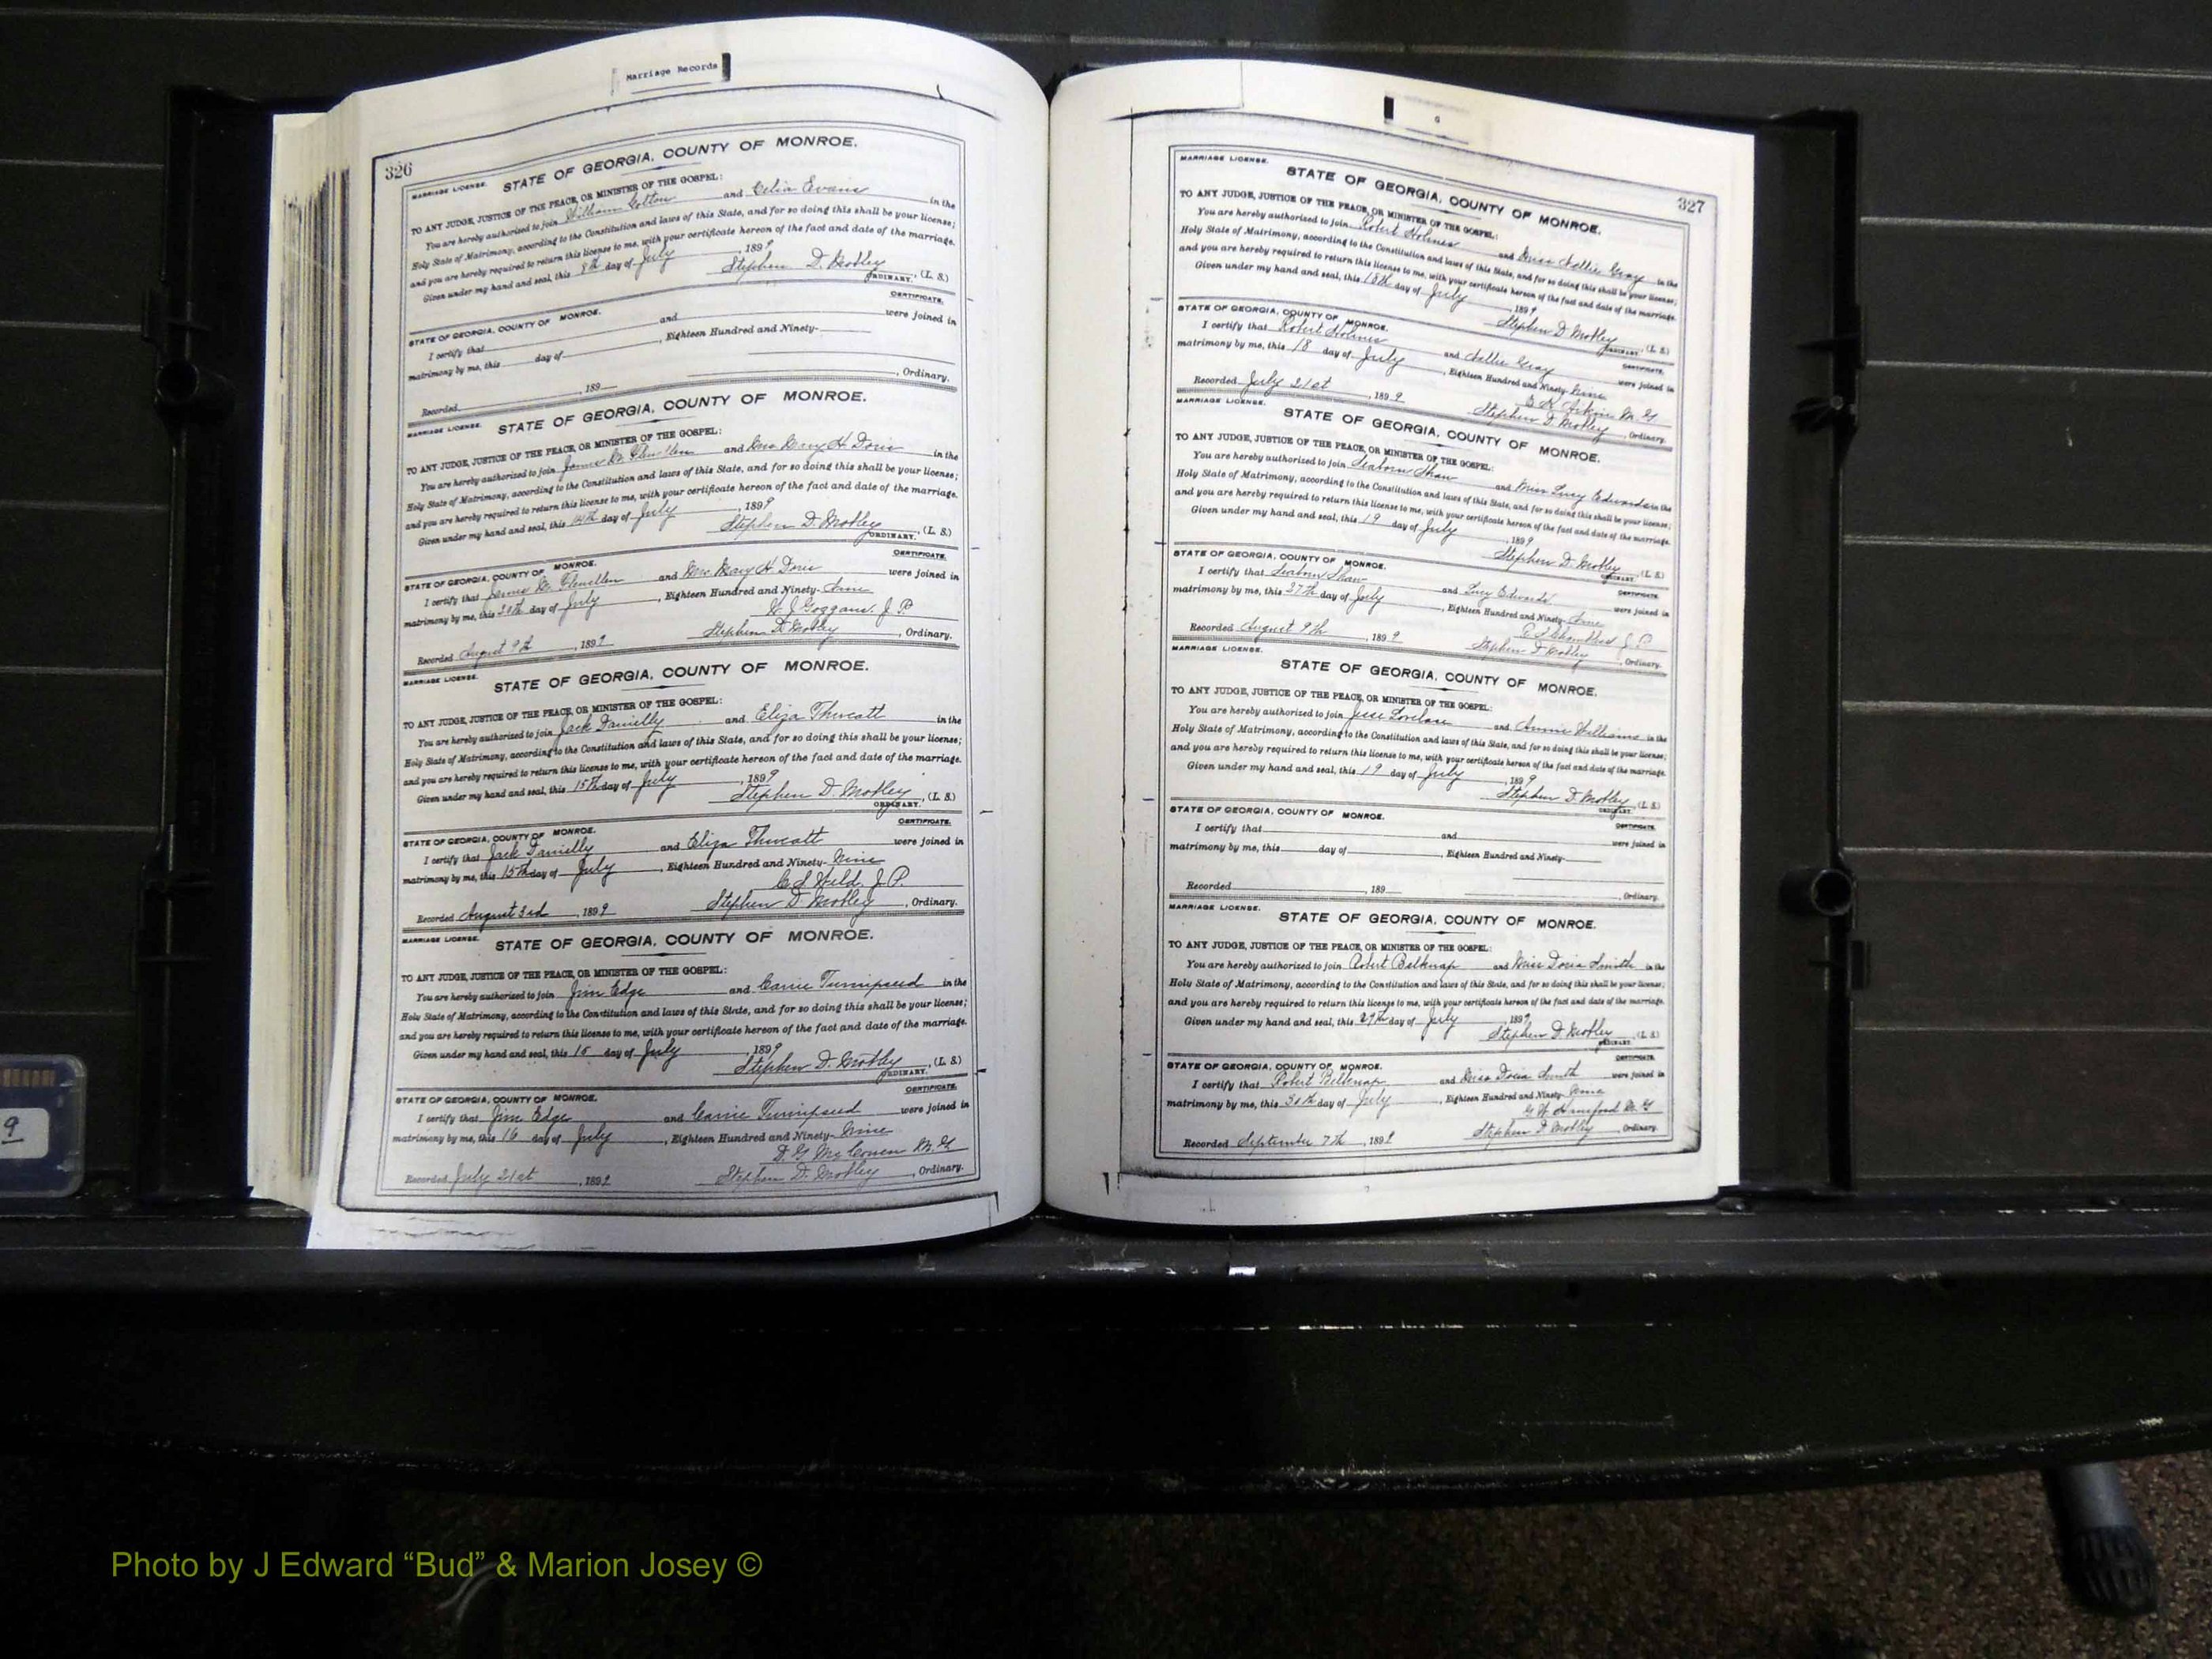 Marriage Records
326
STATE OF GEORGIA, COUNTY OF MONROE.
MARRIAGE LICENSE.
TO ANY JUDGE, JUSTICE OF THE PEACE, OR MINISTER OF THE GOSPEL:
You are hereby authorized to join William and Celia Evans in the
Holy State of Matrimony, according to the Constitution and laws of this State, and for so doing this shall be your license;
and you are hereby required to return this license to me, with your certificate hereon of the fact and date of the marriage.
Given under my hand and seal, this 8th day of July, 1899
Stephen D. Mobley, (L. S.)
ORDINARY.
CERTIFICATE.
STATE OF GEORGIA, COUNTY OF MONROE.
I certify that and were joined in
matrimony by me, this day of, Eighteen Hundred and Ninety-
Recorded, 189
, Ordinary.
STATE OF GEORGIA, COUNTY OF MONROE.
MARRIAGE LICENSE.
TO ANY JUDGE, JUSTICE OF THE PEACE, OR MINISTER OF THE GOSPEL:
You are hereby authorized to join James W. Flewellen and Mrs. Mary H. Davis in the
Holy State of Matrimony, according to the Constitution and laws of this State, and for so doing this shall be your license;
and you are hereby required to return this license to me, with your certificate hereon of the fact and date of the marriage.
Given under my hand and seal, this 14th day of July, 1899
Stephen D. Mobley, (L. S.)
ORDINARY.
CERTIFICATE.
STATE OF GEORGIA, COUNTY OF MONROE.
I certify that James W. Flewellen and Mrs. Mary H. Davis were joined in
matrimony by me, this day of July, Eighteen Hundred and Ninety-Nine
W. J. Goggans. J. P.
Recorded August 9th, 1899 Stephen D. Mobley, Ordinary.
STATE OF GEORGIA, COUNTY OF MONROE.
MARRIAGE LICENSE.
TO ANY JUDGE, JUSTICE OF THE PEACE, OR MINISTER OF THE GOSPEL:
You are hereby authorized to join Jack Danielly and Eliza Threatt in the
Holy State of Matrimony, according to the Constitution and laws of this State, and for so doing this shall be your license;
and you are hereby required to return this license to me, with your certificate hereon of the fact and date of the marriage.
Given under my hand and seal, this 15th day of July, 1899
Stephen D. Mobley, (L. S.)
ORDINARY.
CERTIFICATE.
STATE OF GEORGIA, COUNTY OF MONROE.
I certify that Jack Danielly and Eliza Threatt were joined in
matrimony by me, this 15th day of July, Eighteen Hundred and Ninety-Nine
C. S. Weld. J. P.
Recorded August 3rd, 1899 Stephen D. Mobley, Ordinary.
MARRIAGE LICENSE.
STATE OF GEORGIA, COUNTY OF MONROE.
TO ANY JUDGE, JUSTICE OF THE PEACE, OR MINISTER OF THE GOSPEL:
You are hereby authorized to join Jim Edge and Carrie Turnipseed in the
Holy State of Matrimony, according to the Constitution and laws of this State, and for so doing this shall be your license;
and you are hereby required to return this license to me, with your certificate hereon of the fact and date of the marriage.
Given under my hand and seal, this 15 day of July, 1899
Stephen D. Mobley, (L. S.)
ORDINARY.
CERTIFICATE.
STATE OF GEORGIA, COUNTY OF MONROE.
I certify that Jim Edge and Carrie Turnipseed were joined in
matrimony by me, this 16 day of July, Eighteen Hundred and Ninety-Nine
D. G. McCowen M. G.
Recorded July 21st, 1899 Stephen D. Mobley, Ordinary.
327
MARRIAGE LICENSE.
STATE OF GEORGIA, COUNTY OF MONROE.
TO ANY JUDGE, JUSTICE OF THE PEACE, OR MINISTER OF THE GOSPEL:
You are hereby authorized to join Robert Holmes and Miss Nellie Gray in the
Holy State of Matrimony, according to the Constitution and laws of this State, and for so doing this shall be your license;
and you are hereby required to return this license to me, with your certificate hereon of the fact and date of the marriage.
Given under my hand and seal, this 18th day of July, 1899
Stephen D. Mobley, (L. S.)
ORDINARY.
CERTIFICATE.
STATE OF GEORGIA, COUNTY OF MONROE.
I certify that Robert Holmes and Nellie Gray were joined in
matrimony by me, this 18 day of July, Eighteen Hundred and Ninety-Nine
M. G.
Recorded July 21st, 1899 Stephen D. Mobley, Ordinary.
MARRIAGE LICENSE.
STATE OF GEORGIA, COUNTY OF MONROE.
TO ANY JUDGE, JUSTICE OF THE PEACE, OR MINISTER OF THE GOSPEL:
You are hereby authorized to join Seaborn Shaw and Miss Lucy Edwards in the
Holy State of Matrimony, according to the Constitution and laws of this State, and for so doing this shall be your license;
and you are hereby required to return this license to me, with your certificate hereon of the fact and date of the marriage.
Given under my hand and seal, this 19 day of July, 1899
Stephen D. Mobley, (L. S.)
ORDINARY.
CERTIFICATE.
STATE OF GEORGIA, COUNTY OF MONROE.
I certify that Seaborn Shaw and Lucy Edwards were joined in
matrimony by me, this 27th day of July, Eighteen Hundred and Ninety-Nine
Chambliss J. P.
Recorded August 9th, 1899 Stephen D. Mobley, Ordinary.
MARRIAGE LICENSE.
STATE OF GEORGIA, COUNTY OF MONROE.
TO ANY JUDGE, JUSTICE OF THE PEACE, OR MINISTER OF THE GOSPEL:
You are hereby authorized to join Jesse Lovelace and Annie Williams in the
Holy State of Matrimony, according to the Constitution and laws of this State, and for so doing this shall be your license;
and you are hereby required to return this license to me, with your certificate hereon of the fact and date of the marriage.
Given under my hand and seal, this 19 day of July, 1899
Stephen D. Mobley, (L. S.)
ORDINARY.
CERTIFICATE.
STATE OF GEORGIA, COUNTY OF MONROE.
I certify that and were joined in
matrimony by me, this day of, Eighteen Hundred and Ninety-
Recorded, 189
, Ordinary.
MARRIAGE LICENSE.
STATE OF GEORGIA, COUNTY OF MONROE.
TO ANY JUDGE, JUSTICE OF THE PEACE, OR MINISTER OF THE GOSPEL:
You are hereby authorized to join Robert Belknap and Miss Doria Smith in the
Holy State of Matrimony, according to the Constitution and laws of this State, and for so doing this shall be your license;
and you are hereby required to return this license to me, with your certificate hereon of the fact and date of the marriage.
Given under my hand and seal, this 29th day of July, 1899
Stephen D. Mobley, (L. S.)
ORDINARY.
CERTIFICATE.
STATE OF GEORGIA, COUNTY OF MONROE.
I certify that Robert Belknap and Miss Doria Smith were joined in
matrimony by me, this 30th day of July, Eighteen Hundred and Ninety-Nine
G. W. Hansford M. G.
Recorded September 7th, 1899 Stephen D. Mobley, Ordinary.
9
Photo by J Edward “Bud” & Marion Josey ©